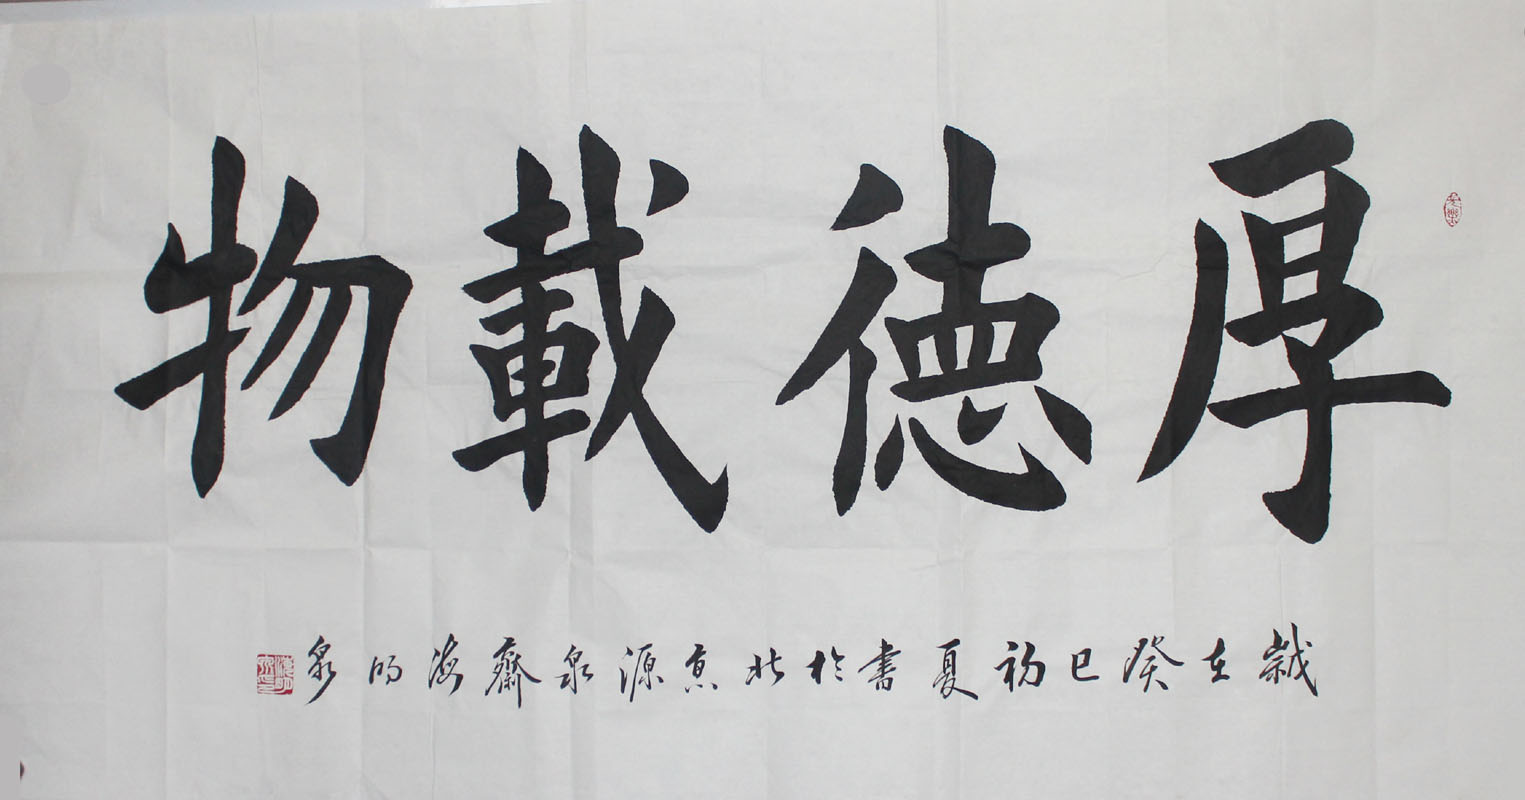 厚德載物
歲在癸巳初夏書於北京源泉齋海明泉